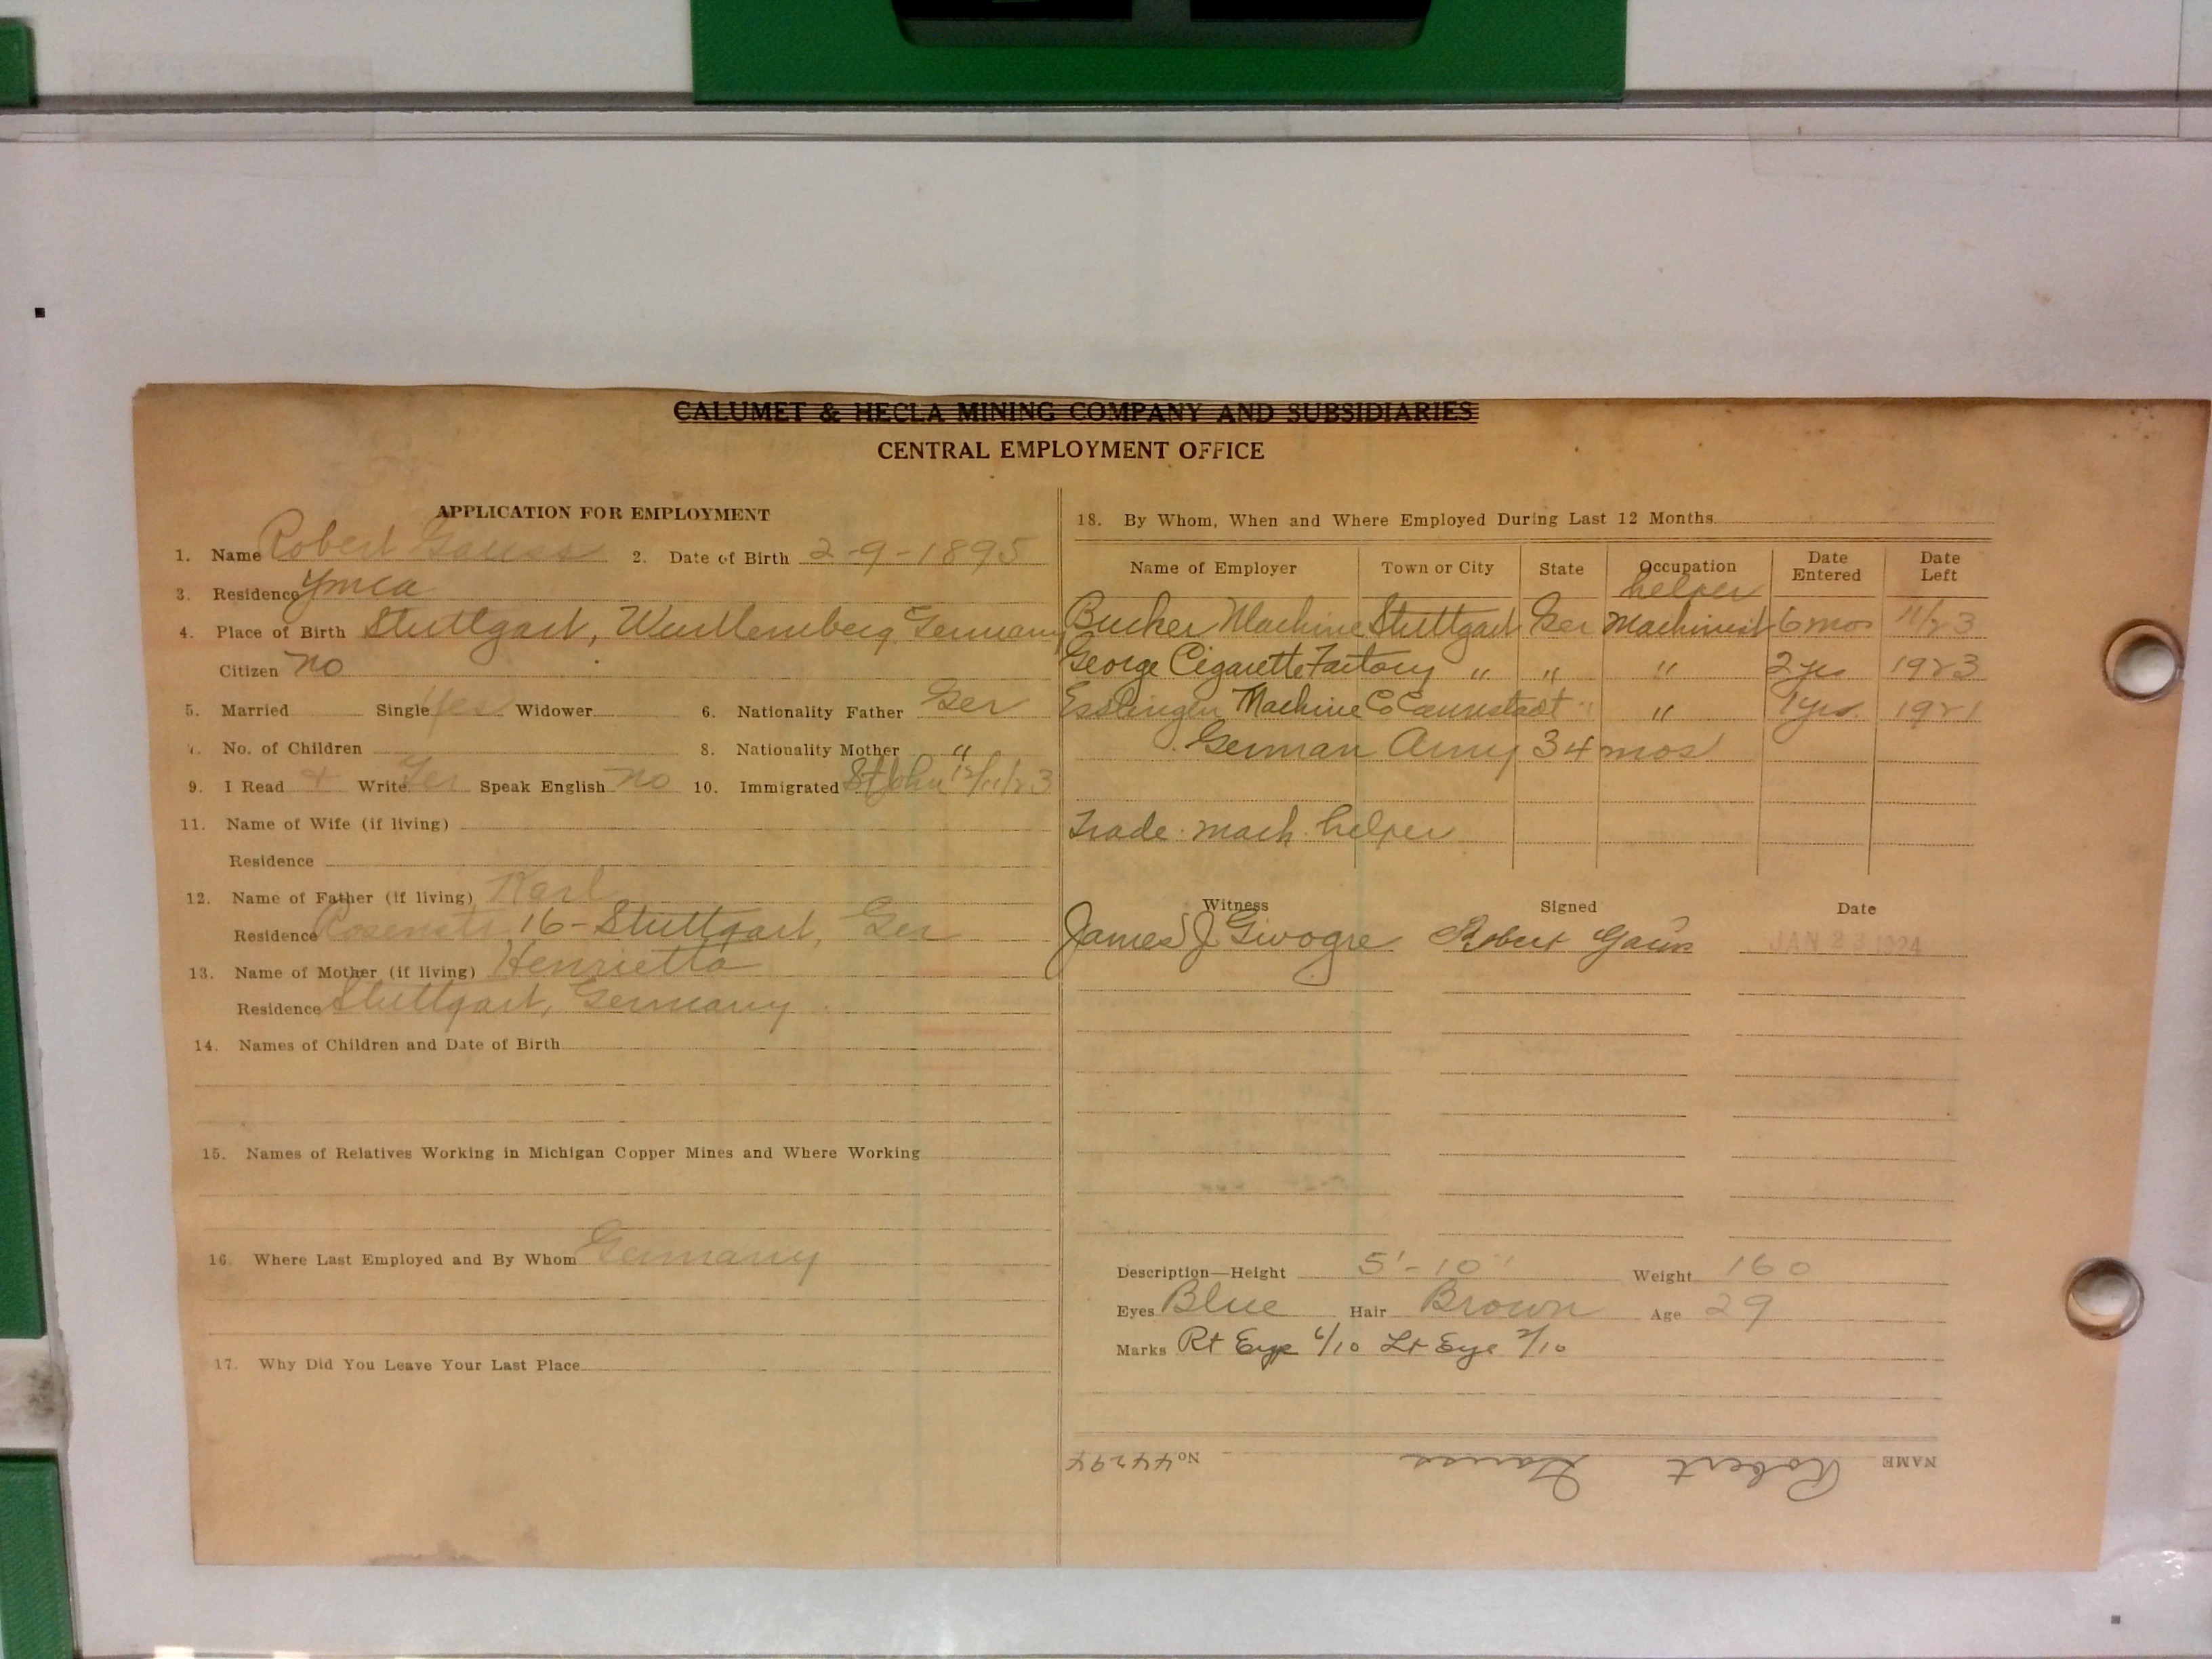 CALUMET & HECLA MINING COMPANY AND SUBSIDIARIES
CENTRAL EMPLOYMENT OFFICE
APPLICATION FOR EMPLOYMENT
1. Name Robert Gauss 2. Date of Birth 2-9-1895
3. Residence Ymca
4. Place of Birth Stuttgart, Wurtemberg Germany
Citizen no
5. Married Single Yes Widower 6. Nationality Father Ger
7. No. of Children 8. Nationality Mother "
9. I Read & Write Ger Speak English no 10. Immigrated St John 12/11/23
11. Name of Wife (if living)
Residence
12. Name of Father (if living) Karl
Residence Rosenstr 16 - Stuttgart, Ger
13. Name of Mother (if living) Henrietta
Residence Stuttgart, Germany
14. Names of Children and Date of Birth
15. Names of Relatives Working in Michigan Copper Mines and Where Working
16. Where Last Employed and By Whom Germany
17. Why Did You Leave Your Last Place
18. By Whom, When and Where Employed During Last 12 Months
Name of Employer Town or City State Occupation Date Entered Date Left
helper
Bucher Machine Stuttgart Ger Machinist 6 mos 11/23
George Cigarette Factory " " " 2 yrs 1923
Esslingen Machine Co Cannstadt " " 1 yrs. 1921
German Army 34 mos
Trade - mach. helper
Witness Signed Date
James J. Robert Gauss JAN 23 1924
Description—Height 5'-10" Weight 160
Eyes Blue Hair Brown Age 29
Marks Rt Eye 6/10 Lt Eye 2/10
NAME Robert Gauss No 44294